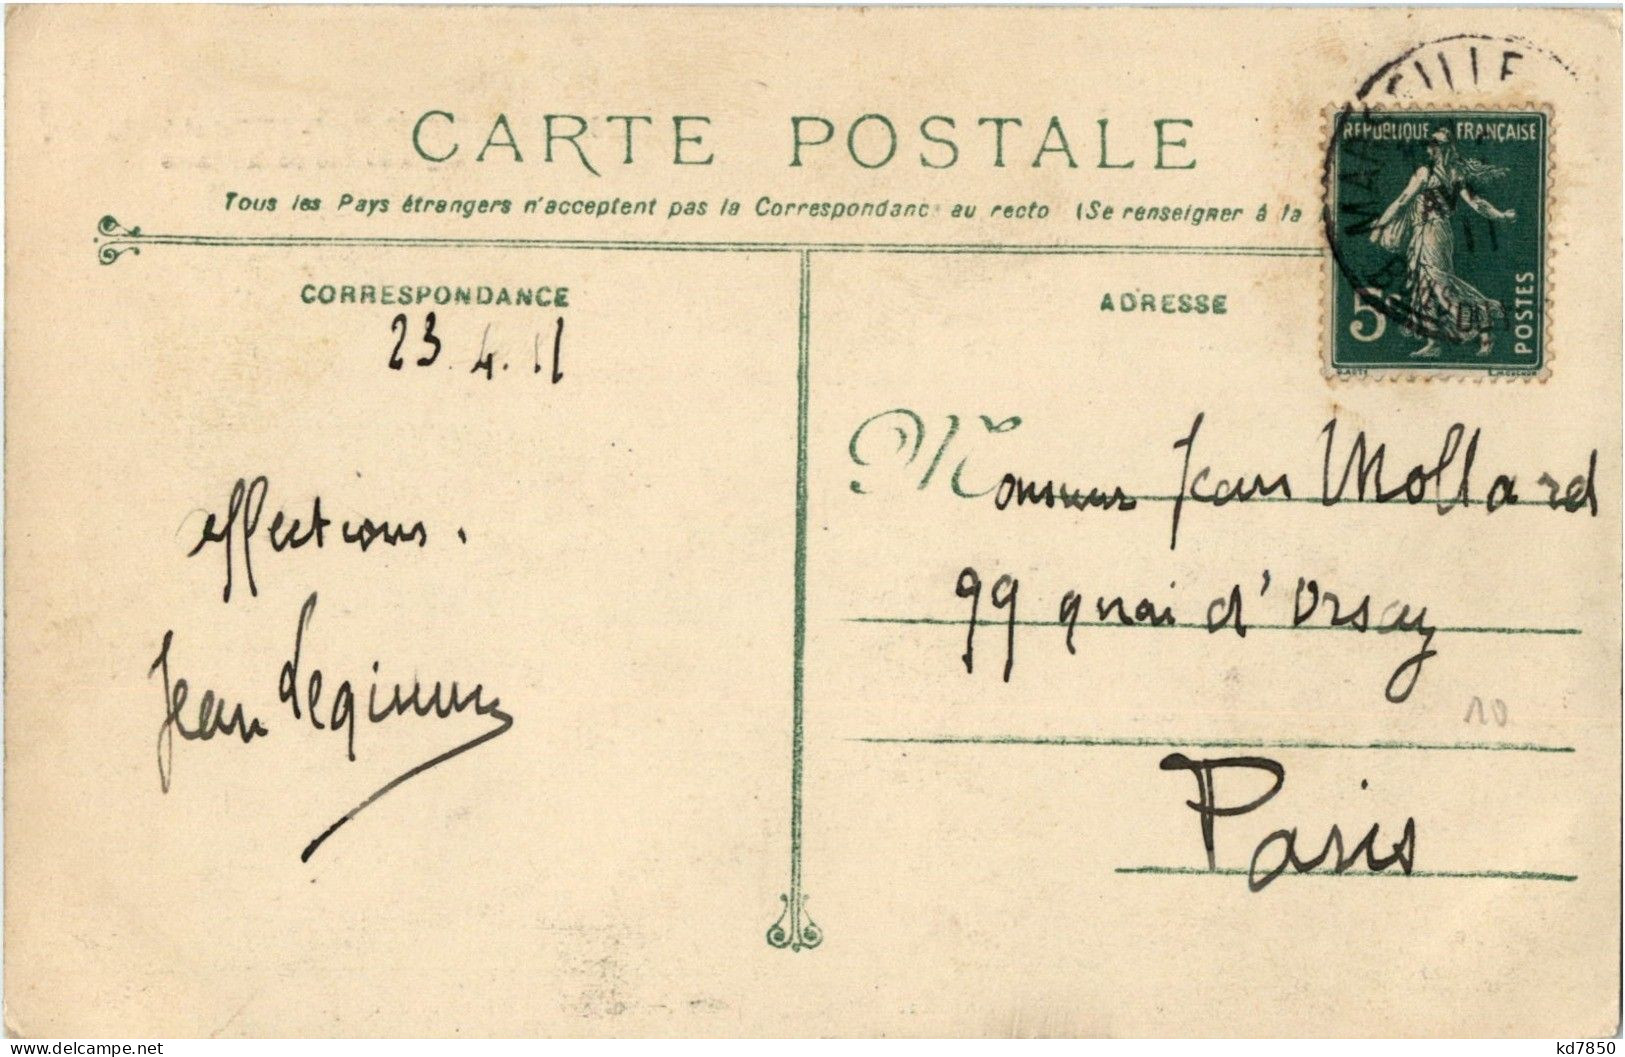 CARTE POSTALE
Tous les Pays étrangers n'acceptent pas la Correspondance au recto (Se renseigner à la
CORRESPONDANCE
23.4.11
effections.
Jean
ADRESSE
MARSEILLE
AV
11
REPUBLIQUE FRANÇAISE
5c
POSTES
Monsieur Jean Mollard
99 quai d'Orsay
10
Paris
delcampe.net
kd7850